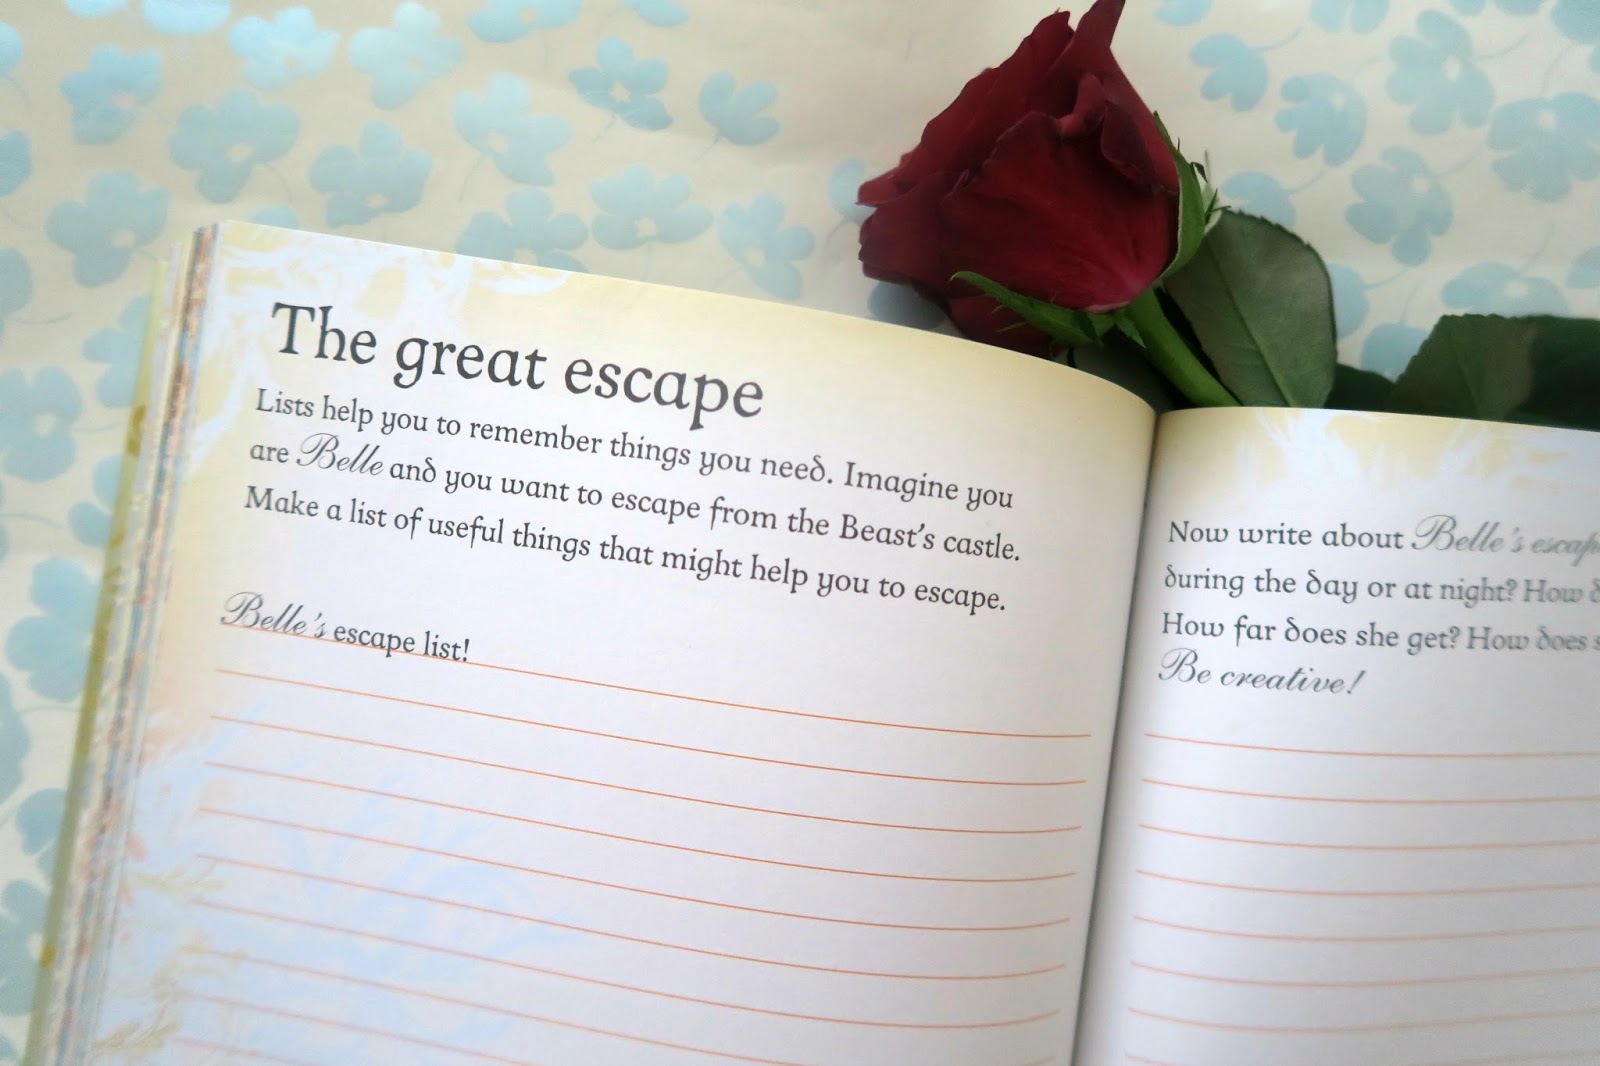 The great escape
Lists help you to remember things you need. Imagine you
are Belle and you want to escape from the Beast's castle.
Make a list of useful things that might help you to escape.
Belle's escape list!
Now write about Belle's
during the day or at night? How
How far does she get? How does
Be creative!